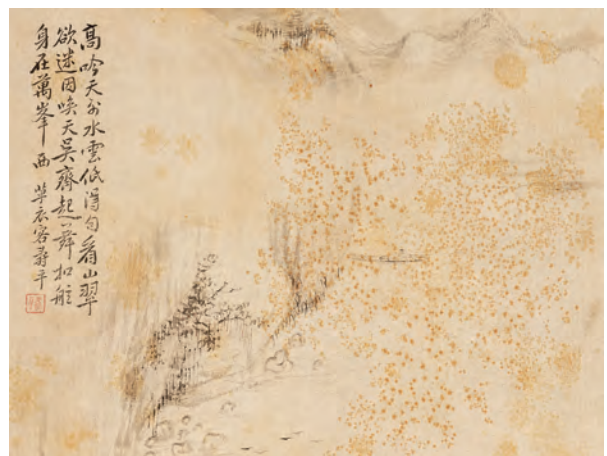 高吟天外水雲低得句看山翠
欲迷因喚天吳齊起舞扣舷
身在萬峯西 草衣客壽平